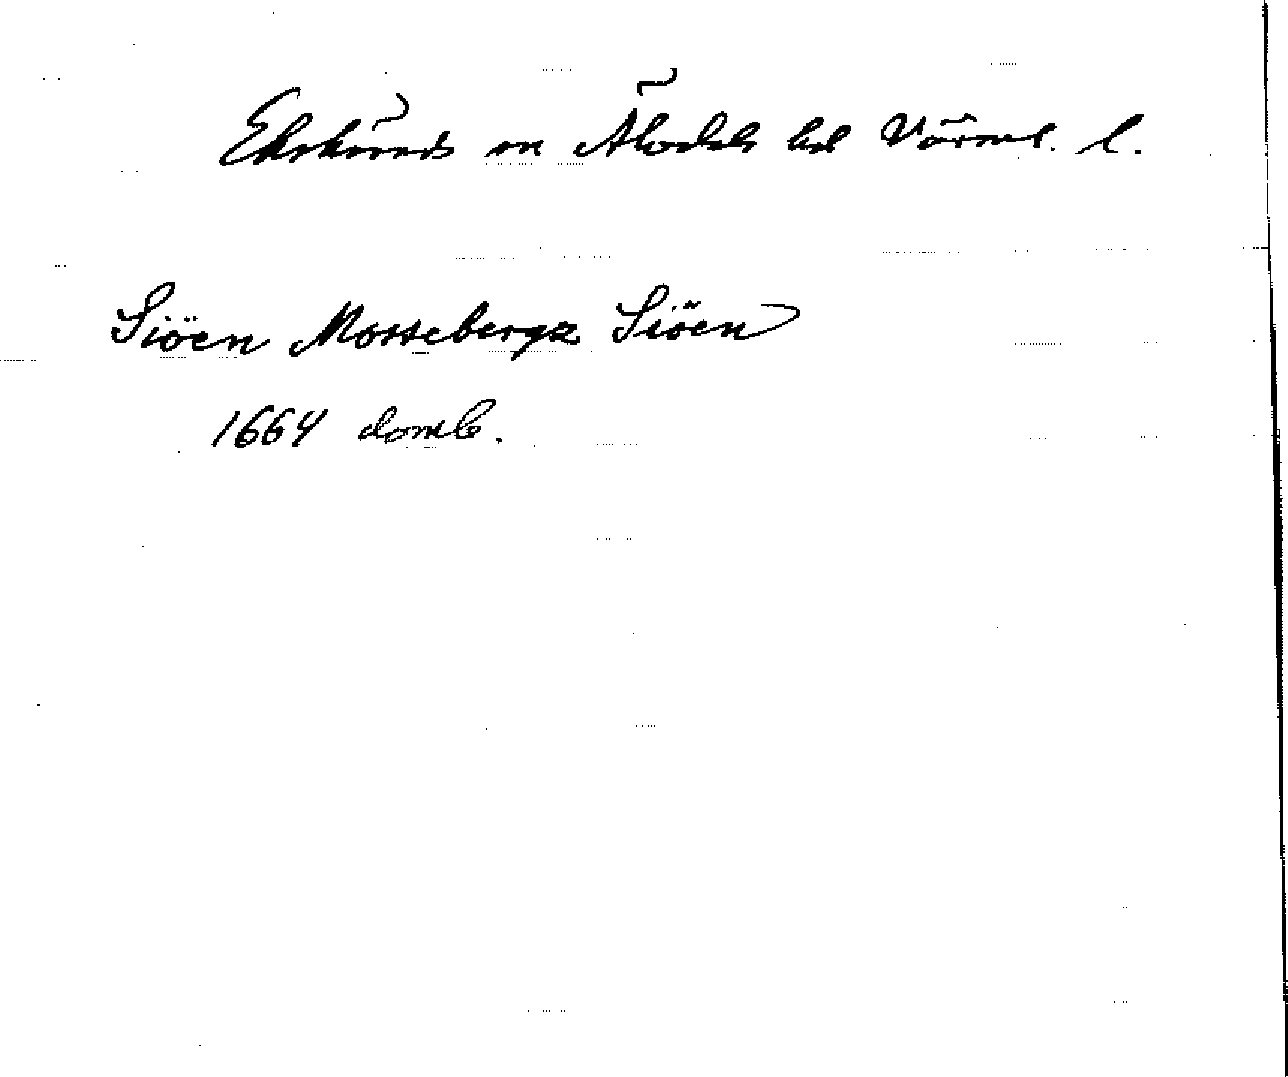 Ekshärads sn Älvdals hd Värml. l.
Siöen Mossebergz Siöen
1664 domb.